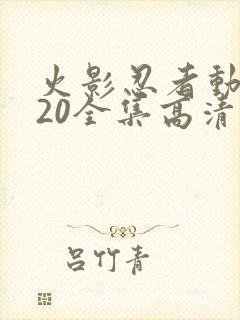 火影忍者動
20全集高清
呂竹青